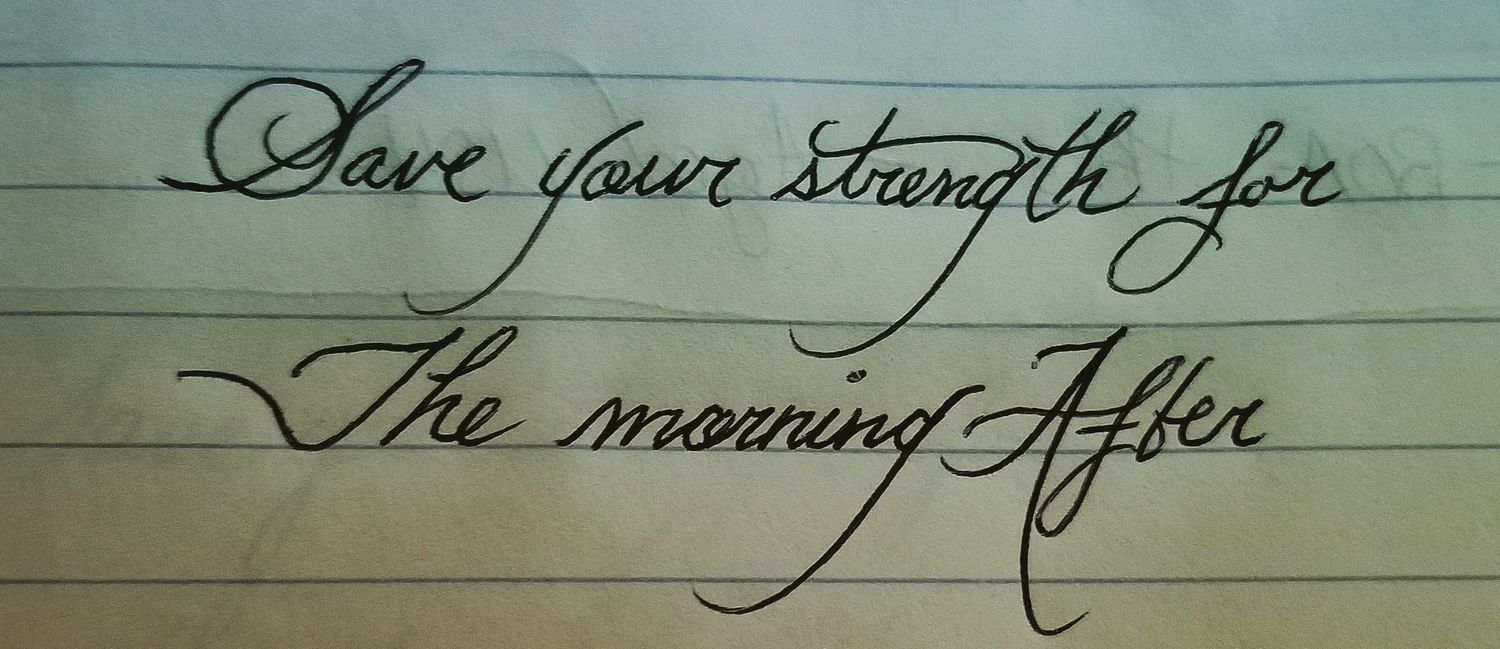 Save your strength for
The morning After